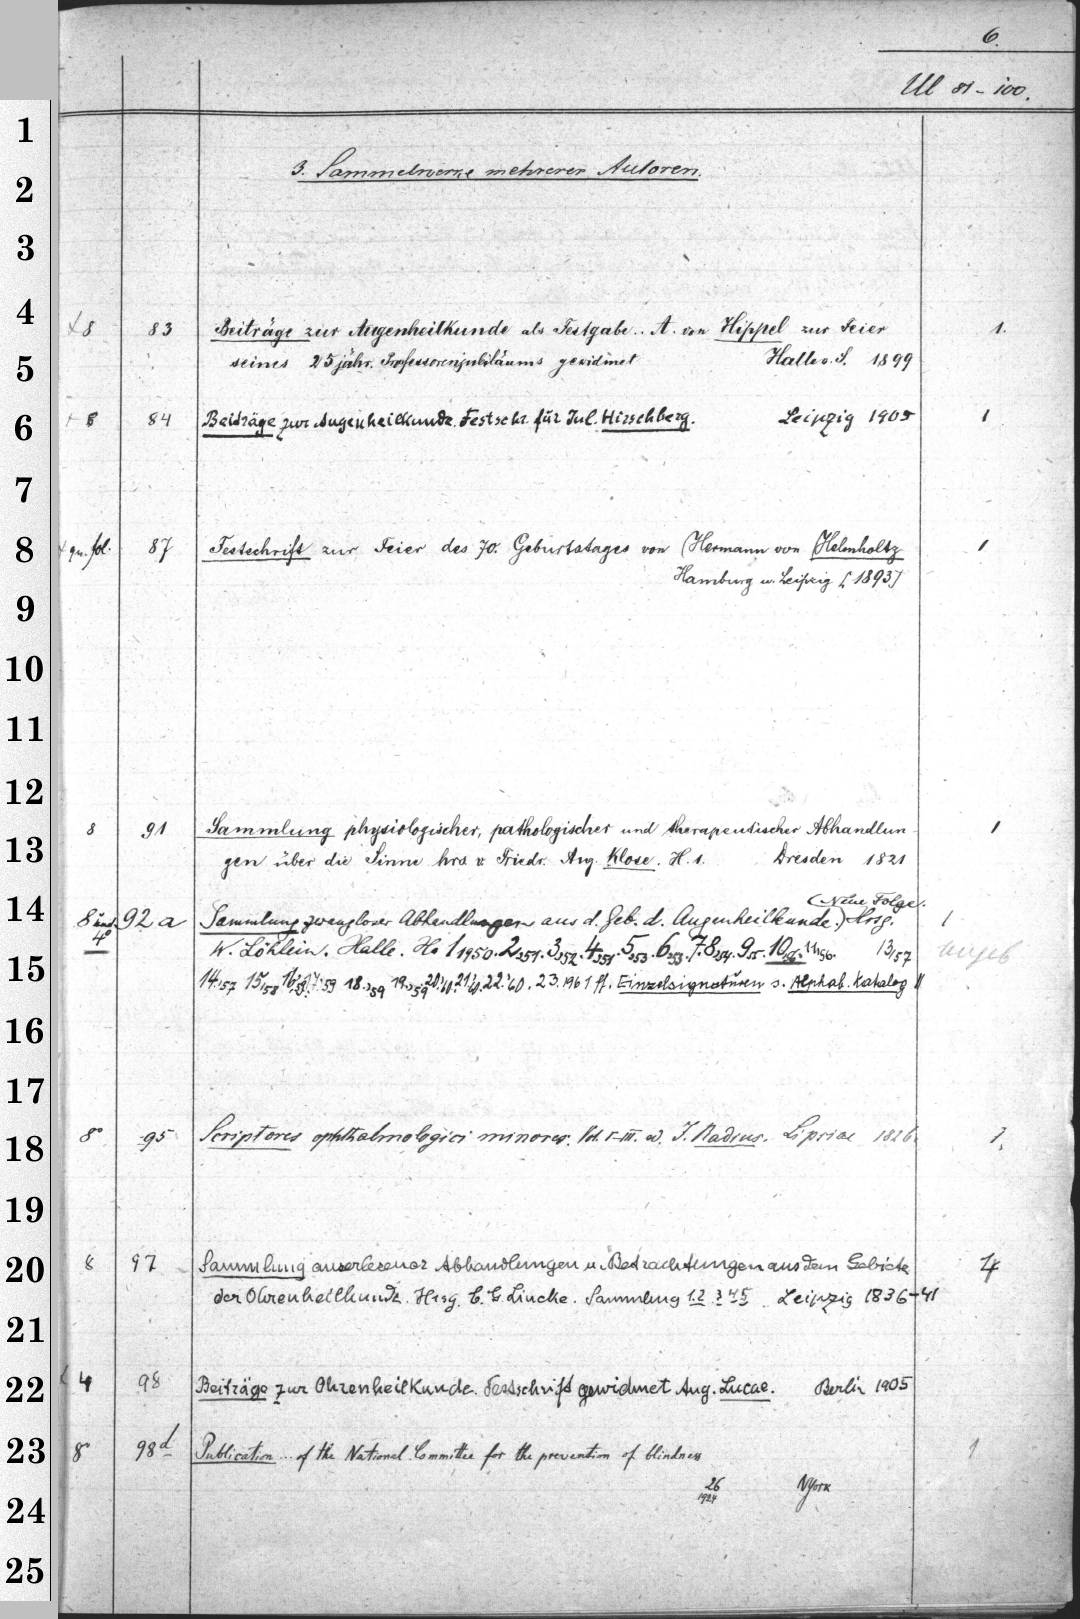 6.
Ul 81-100.
3. Sammelwerke mehrerer Autoren.
8 83 Beiträge zur Augenheilkunde als Festgabe.. A. von Hippel zur Feier 1.
seines 25jähr. Professorenjubiläums gewidmet Halle a. S. 1899
+ 8 84 Beiträge zur Augenheilkunde. Festschr. für Jul. Hirschberg. Leipzig 1905 1
gr. fol. 87 Festschrift zur Feier des 70. Geburtstages von (Hermann von (Helmholtz 1
Hamburg u. Leipzig [1893]
8 91 Sammlung physiologischer, pathologischer und therapeutischer Abhandlun 1
gen über die Sinne hrs v. Friedr. Aug. Klose. H. 1. Dresden 1821
(Neue Folge.
8° und 4° 92 a Sammlung zwangloser Abhandlungen aus d. Geb. d. Augenheilkunde.) Hrsg. 1
W. Löhlein. Halle. H. 1 1950. 2 1951. 3 1952. 4 1951. 5 1953. 6 1953. 7. 8 1954. 9 10 11 56. 13/57
14 '57 15 '58 16 17 '59 18 '59 19 '59 20 '60 21 '60 22 '60. 23. 1961 ff. Einzelsignaturen s. Alphab. Katalog
8° 95 Scriptores ophthalmologici minores. Vol. I-III. ed. J. Radius. Lipsiae 1826 1.
8 97 Sammlung auserlesener Abhandlungen u. Betrachtungen aus dem Gebiete 4
der Ohrenheilkunde. Hrsg. C. G. Lincke. Sammlung 1.2 3 4 5 Leipzig 1836-41
4 98 Beiträge zur Ohrenheilkunde. Festschrift gewidmet Aug. Lucae. Berlin 1905
8° 98d Publication... of the National Committee for the prevention of blindness 1
26 1924 NYork
1
2
3
4
5
6
7
8
9
10
11
12
13
14
15
16
17
18
19
20
21
22
23
24
25